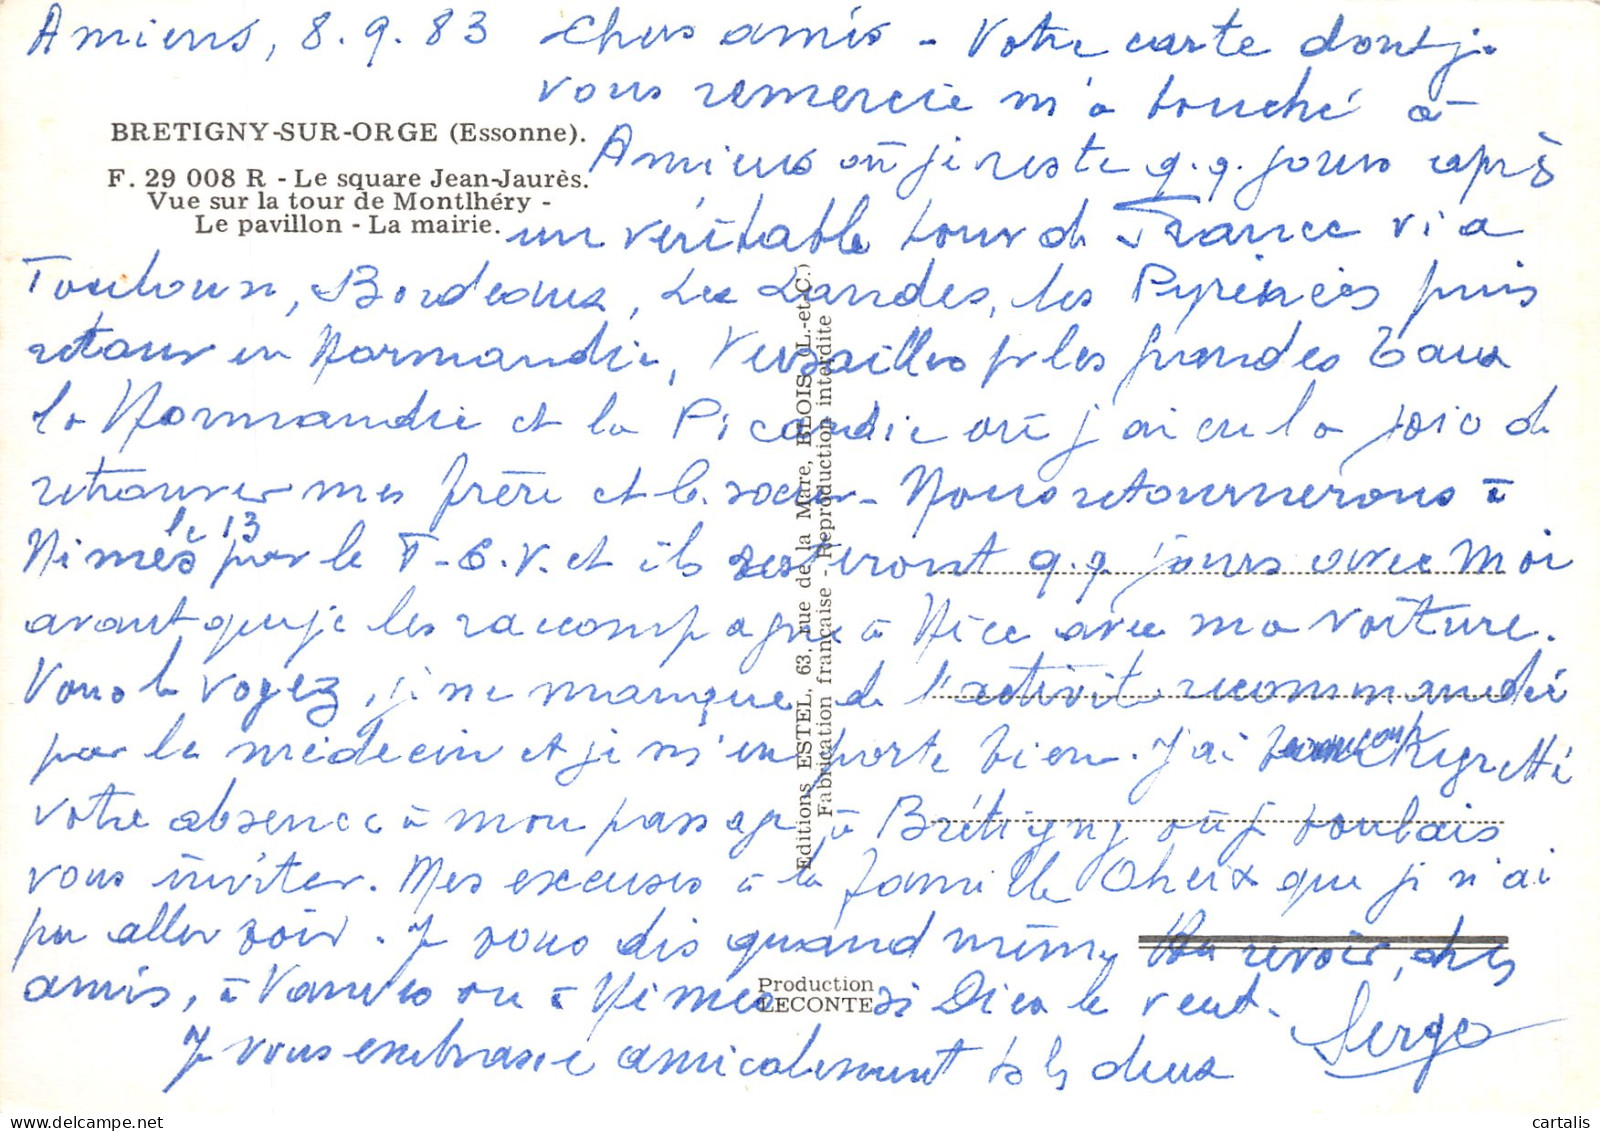 Amiens, 8.9.83 Chers amis - Votre carte dont je
vous remercie m'a touché à
BRETIGNY-SUR-ORGE (Essonne).
Amiens où je reste q.q. jours après
F. 29 008 R - Le square Jean-Jaurès.
Vue sur la tour de Montlhéry -
Le pavillon - La mairie.
un véritable tour de France via
Toulouse, Bordeaux, Les Landes, les Pyrénées puis
retour en Normandie, Versailles pr les grandes Eaux
la Normandie et la Picardie où j'ai eu la joie de
retrouver mes frère et b. soeur - Nous retournerons à
Nimes le 13 par le T.G.V. et ils resteront q.q. jours avec moi
avant que je les raccompagne à Nice avec ma voiture.
Vous le voyez, je ne manque de l'activité recommandée
par le médecin et je m'en porte bien. J'ai beaucoup regretté
votre absence à mon passage à Brétigny où je voulais
vous inviter. Mes excuses à la famille Oheix que je n'ai
pu aller voir. Je vous dis quand même Au revoir, chers
amis, à Vanves ou à Nimes si Dieu le veut.
Je vous embrasse amicalement ts les deux
Serge
Editions ESTEL, 63, rue de la Mare, BLOIS (L.-et-C.)
Fabrication française - Reproduction interdite
Production
LECONTE
cartalis